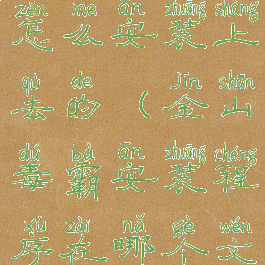 zěn me ān zhuāng shàng
怎么安装上
qù de jīn shān
去的（金山
dú bà ān zhuāng chéng
毒霸安装程
xù zài nǎ gè wén
序在哪个文